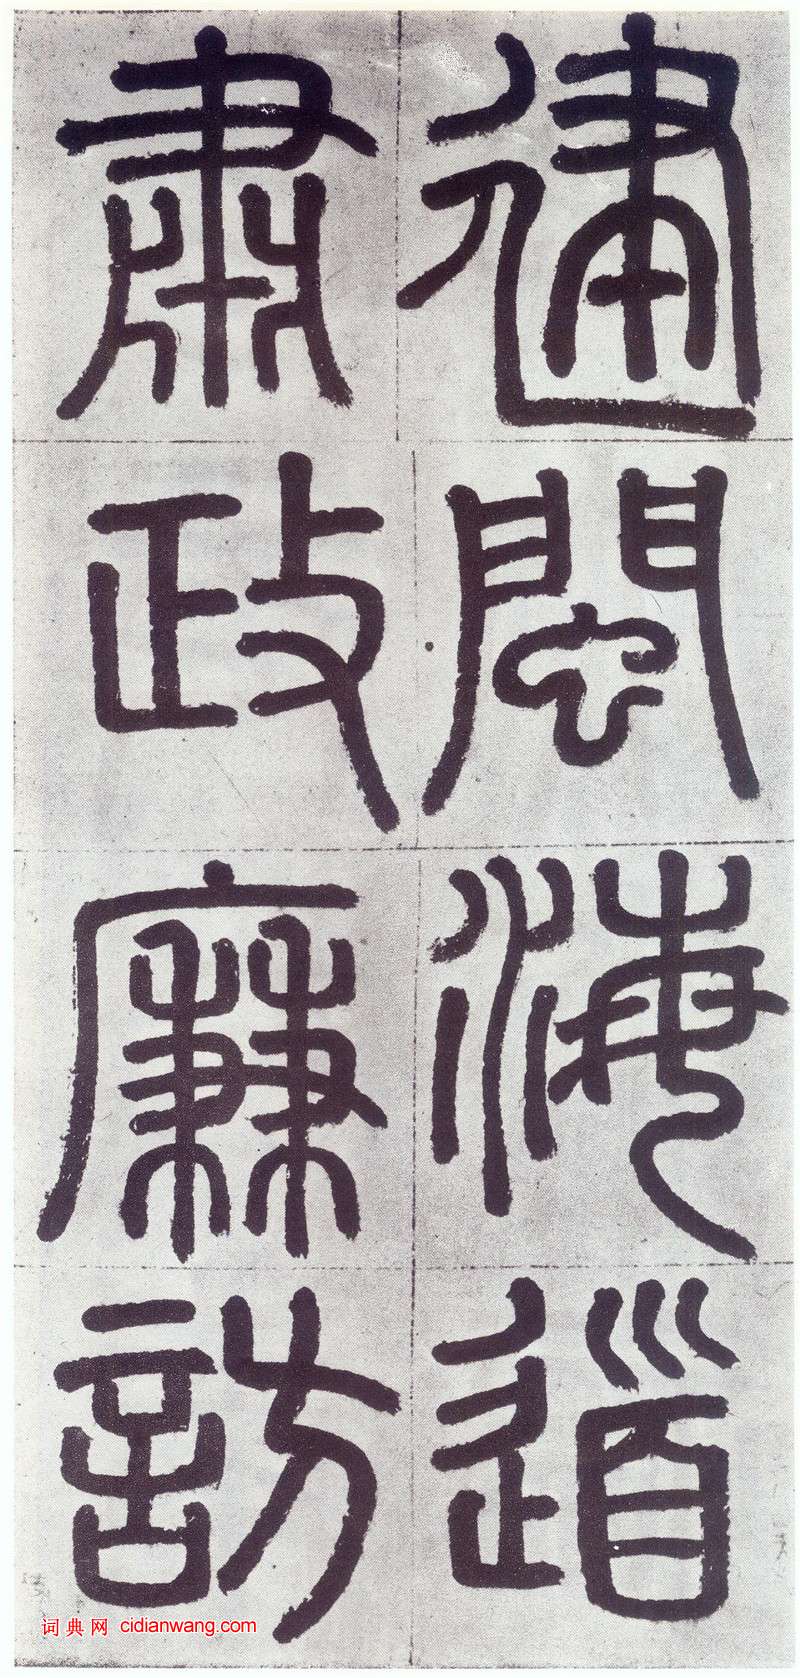 建閩海道
肅政廉訪
词典网 cidianwang.com